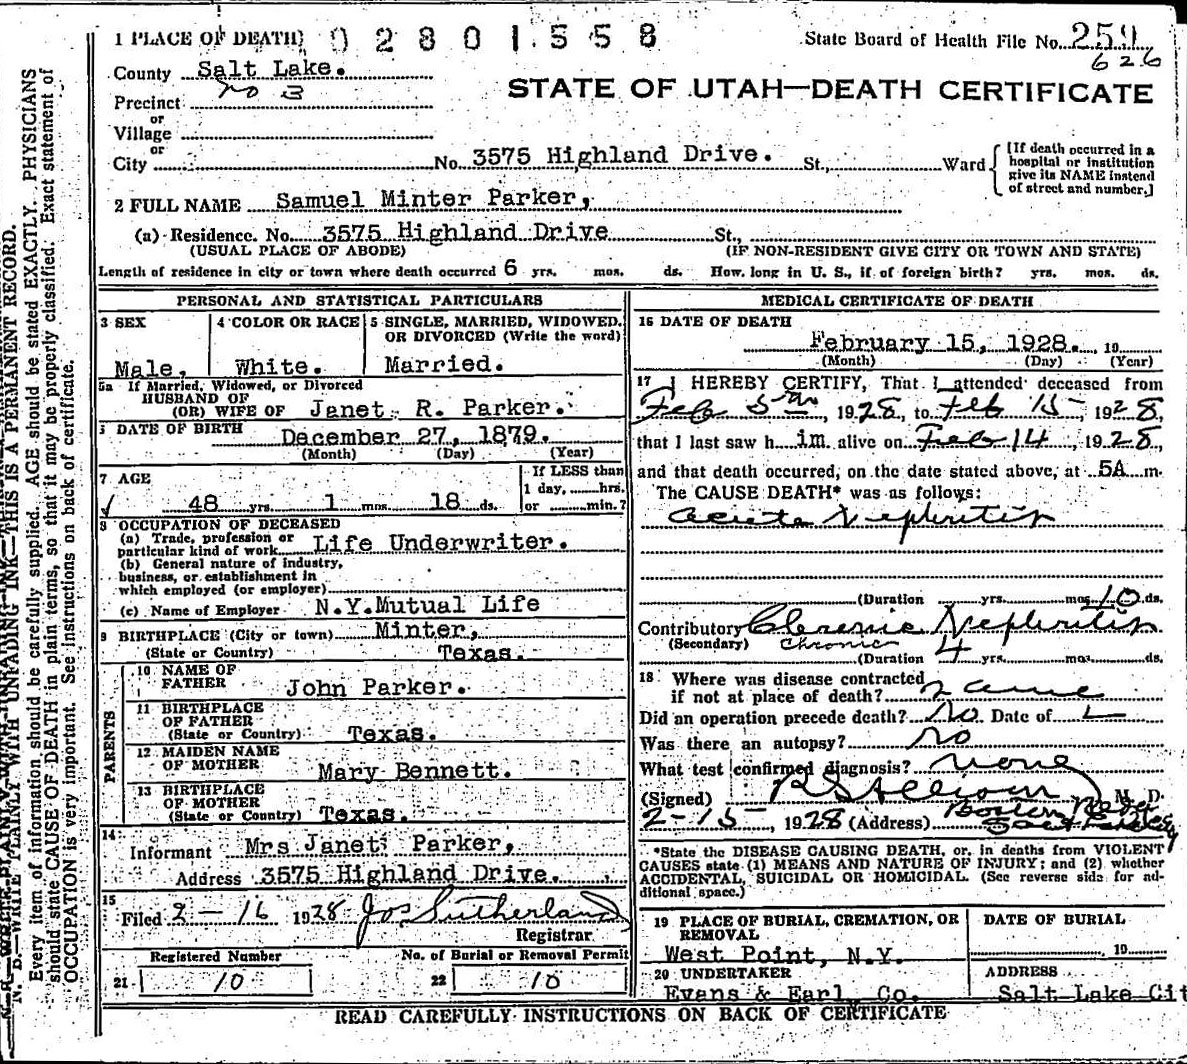 1 PLACE OF DEATH 02801558 State Board of Health File No. 259
626
County Salt Lake.
STATE OF UTAH—DEATH CERTIFICATE
Precinct no 3
or
Village
or
City No. 3575 Highland Drive. St., Ward
[If death occurred in a
hospital or institution
give its NAME instead
of street and number.]
2 FULL NAME Samuel Minter Parker,
(a) Residence. No. 3575 Highland Drive St.,
(USUAL PLACE OF ABODE) (IF NON-RESIDENT GIVE CITY OR TOWN AND STATE)
Length of residence in city or town where death occurred 6 yrs. mos. ds. How long in U. S., if of foreign birth? yrs. mos. ds.
PERSONAL AND STATISTICAL PARTICULARS
3 SEX
Male,
4 COLOR OR RACE
White.
5 SINGLE, MARRIED, WIDOWED,
OR DIVORCED (Write the word)
Married.
5a If Married, Widowed, or Divorced
HUSBAND OF
(OR) WIFE OF Janet R. Parker.
DATE OF BIRTH December 27, 1879.
(Month) (Day) (Year)
7 AGE
48 yrs. 1 mos. 18 ds.
If LESS than
1 day, hrs.
or min.?
8 OCCUPATION OF DECEASED
(a) Trade, profession or
particular kind of work Life Underwriter.
(b) General nature of industry,
business, or establishment in
which employed (or employer)
(c) Name of Employer N.Y.Mutual Life
9 BIRTHPLACE (City or town) Minter,
(State or Country) Texas.
PARENTS
10 NAME OF
FATHER John Parker.
11 BIRTHPLACE
OF FATHER
(State or Country) Texas.
12 MAIDEN NAME
OF MOTHER Mary Bennett.
13 BIRTHPLACE
OF MOTHER
(State or Country) Texas.
14
Informant Mrs Janet Parker,
Address 3575 Highland Drive.
15
Filed 2-16 1928 Jos Sutherland
Registrar
Registered Number
21 10
No. of Burial or Removal Permit
22 10
MEDICAL CERTIFICATE OF DEATH
16 DATE OF DEATH
February 15, 1928. 19
(Month) (Day) (Year)
17 I HEREBY CERTIFY, That I attended deceased from
Feb 5th, 1928, to Feb 15 1928
that I last saw him. alive on Feb 14, 1928,
and that death occurred, on the date stated above, at 5A m.
The CAUSE DEATH* was as follows:
Acute Nephritis
(Duration yrs. mos. 10 ds.
Contributory Chronic Nephritis
(Secondary) Chronic
(Duration 4 yrs. mos. ds.
18 Where was disease contracted
if not at place of death? same
Did an operation precede death? No Date of
Was there an autopsy? No
What test confirmed diagnosis? none
(Signed) R S Allison M. D.
2-15, 1928 (Address) Boston
*State the DISEASE CAUSING DEATH, or, in deaths from VIOLENT
CAUSES state (1) MEANS AND NATURE OF INJURY; and (2) whether
ACCIDENTAL, SUICIDAL OR HOMICIDAL. (See reverse side for ad-
ditional space.)
19 PLACE OF BURIAL, CREMATION, OR
REMOVAL
West Point, N.Y.
DATE OF BURIAL
19
20 UNDERTAKER
Evans & Earl, Co.
ADDRESS
Salt Lake Cit
READ CAREFULLY INSTRUCTIONS ON BACK OF CERTIFICATE
N. B.—WRITE PLAINLY WITH UNFADING INK—THIS IS A PERMANENT RECORD.
Every item of information should be carefully supplied. AGE should be stated EXACTLY. PHYSICIANS
should state CAUSE OF DEATH in plain terms, so that it may be properly classified. Exact statement of
OCCUPATION is very important. See instructions on back of certificate.